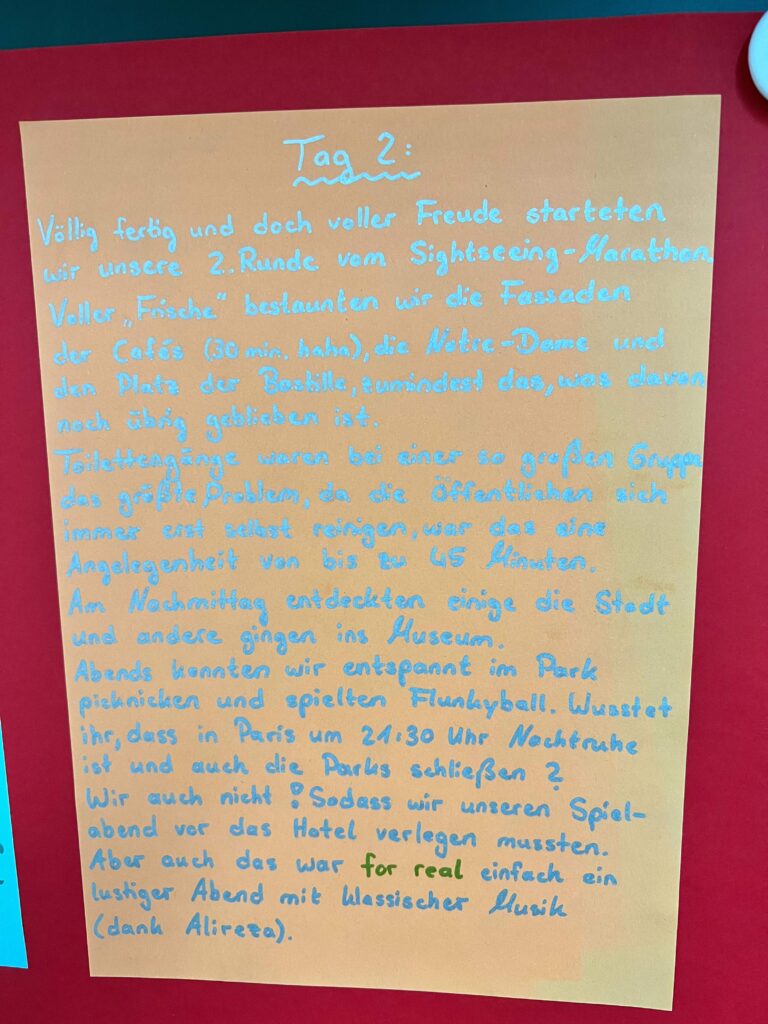 Tag 2:
Völlig fertig und doch voller Freude starteten
wir unsere 2. Runde vom Sightseeing-Marathon.
Voller „Frische“ bestaunten wir die Fassaden
der Cafés (30 min. haha), die Notre-Dame und
den Platz der Bastille, zumindest das, was davon
noch übrig geblieben ist.
Toilettengänge waren bei einer so großen Gruppe
das größte Problem, da die Öffentlichen sich
immer erst selbst reinigen, war das eine
Angelegenheit von bis zu 45 Minuten.
Am Nachmittag entdeckten einige die Stadt
und andere gingen ins Museum.
Abends konnten wir entspannt im Park
picknicken und spielten Flunkyball. Wusstet
ihr, dass in Paris um 21:30 Uhr Nachtruhe
ist und auch die Parks schließen?
Wir auch nicht! Sodass wir unseren Spiel-
abend vor das Hotel verlegen mussten.
Aber auch das war for real einfach ein
lustiger Abend mit klassischer Musik
(dank Alireza).